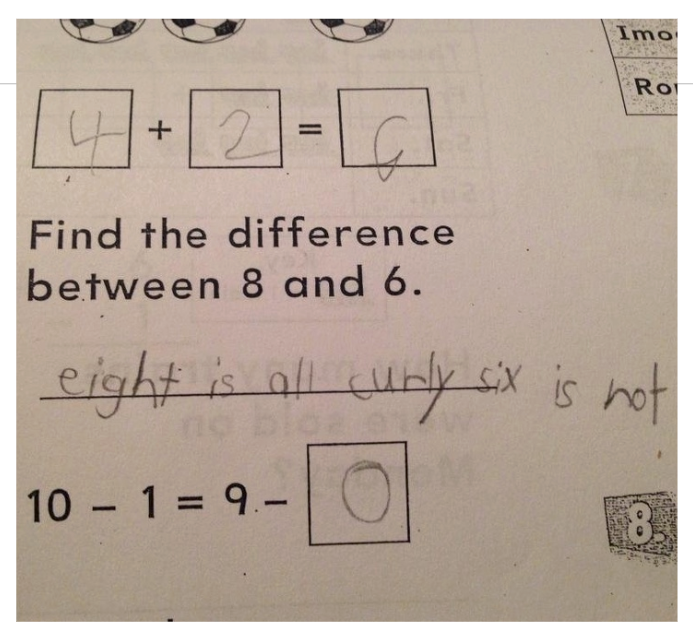 Imo
Ro
4 + 2 = 6
Find the difference
between 8 and 6.
eight is all curly six is not
10 – 1 = 9 – 0
8.